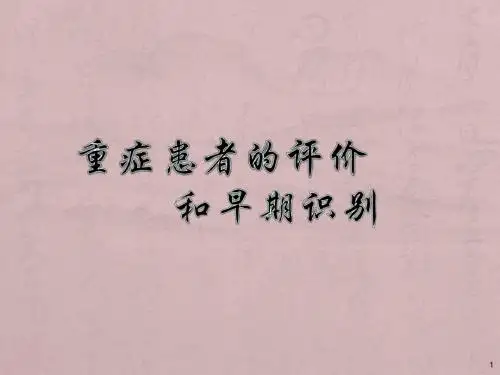 重症患者的评价
和早期识别
1